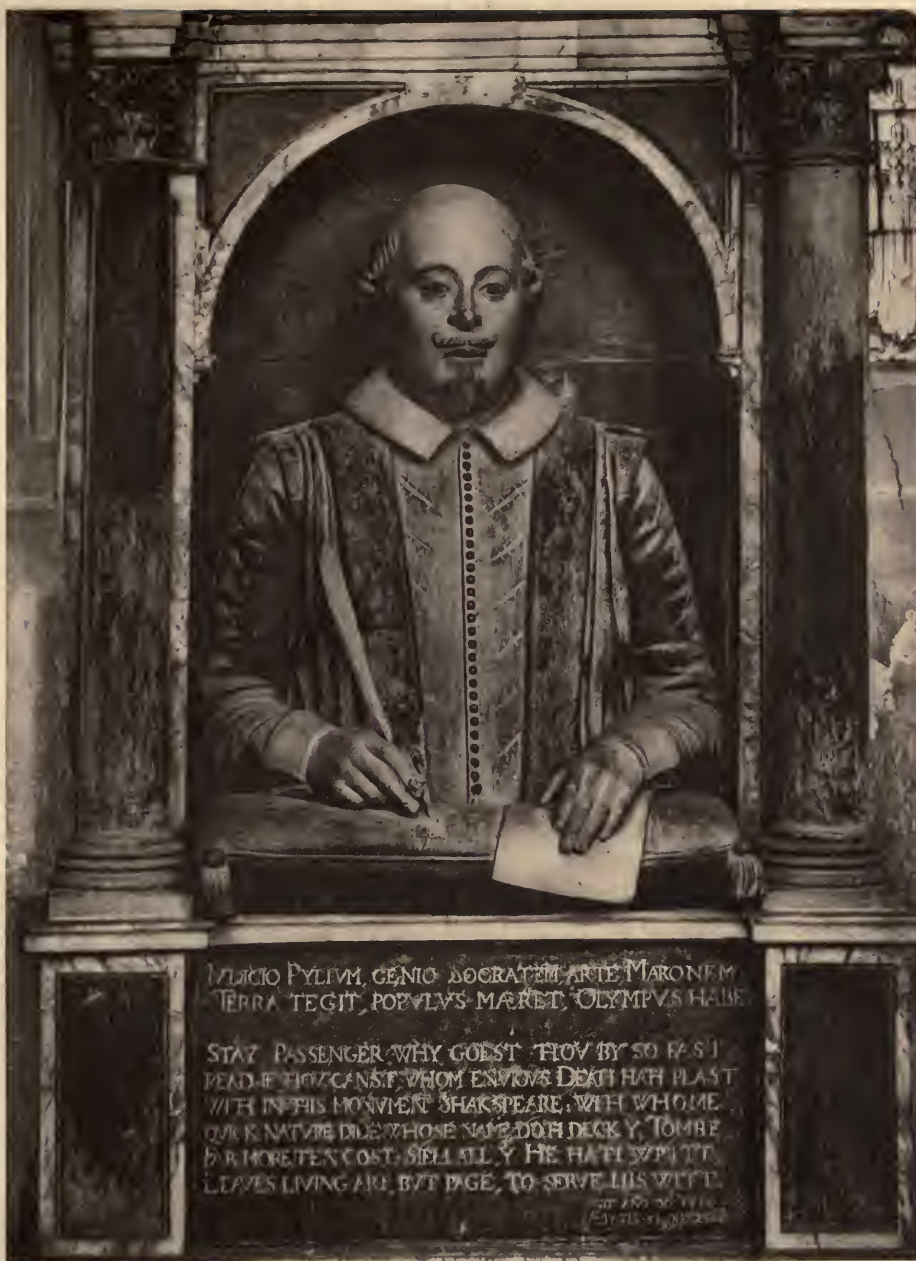 IVDICIO PYLIVM, GENIO SOCRATEM, ARTE MARONEM,
TERRA TEGIT, POPVLVS MÆRET, OLYMPVS HABET
STAY PASSENGER, WHY GOEST THOV BY SO FAST
READ IF THOV CANST, WHOM ENVIOVS DEATH HATH PLAST
WITH IN THIS MONVMENT SHAKSPEARE: WITH WHOME
QVICK NATVRE DIDE: WHOSE NAME DOTH DECK Y, TOMBE
FAR MORE TEN COST: SIEH ALL, Y HE HATH WRITT,
LEAVES LIVING ART, BVT PAGE, TO SERVE HIS WITT.